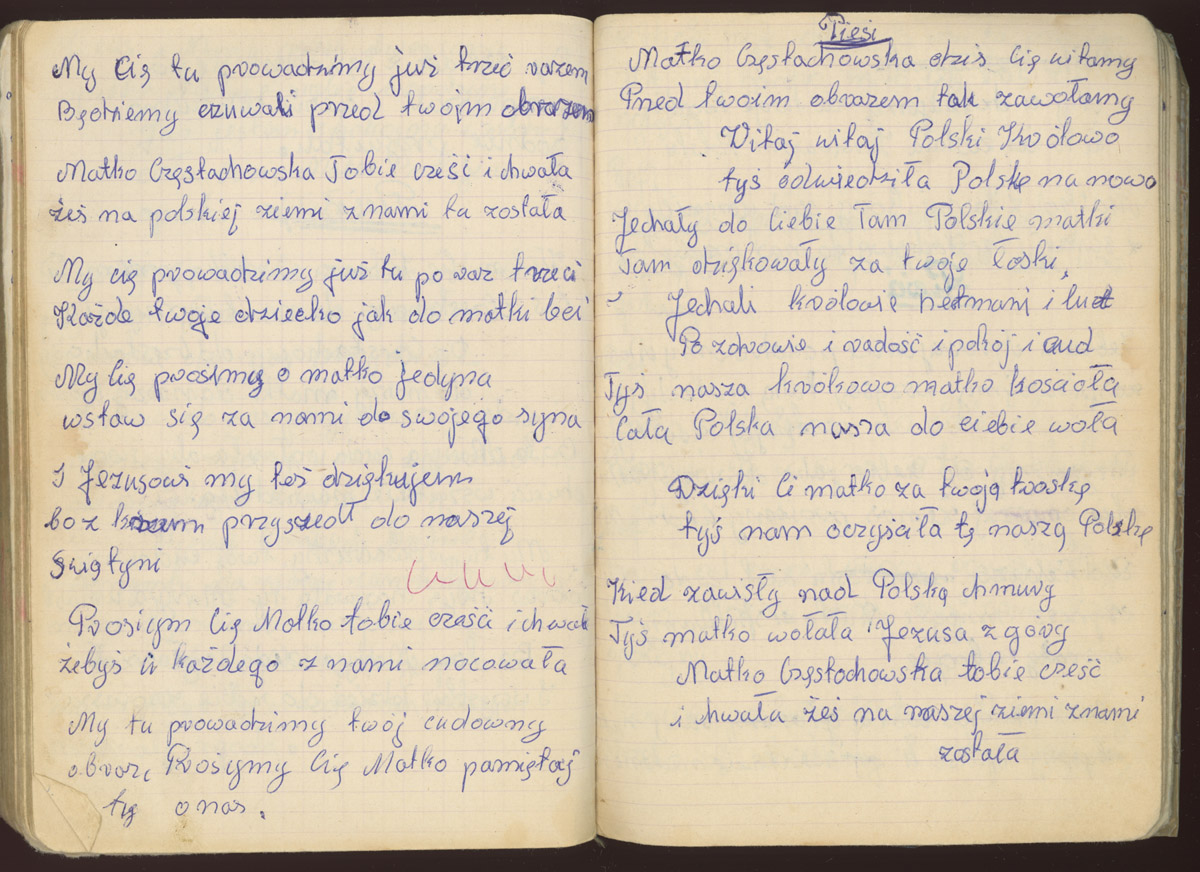 My Cię tu prowadzimy już trzeć razem
Będziemy czuwali przed twójm obrazem
Matko Częstachowska Tobie cześć i chwała
żeś na polskiej ziemi z nami tu została
My cię prowadzimy już tu po raz trzeci
Każde twoje dziecko jak do matki bei
My Cię prosimy o matko jedyna
wstaw się za nami do swojego syna
I Jezusowi my też dziękujem
bo z przyszedł do naszej
świątyni
Prosiym Cię Matko tobie cześć i chwała
żebyś u każdego z nami nocowała
My tu prowadzimy twój cudowny
obraz, Prosiymy Cię Matko pamiętaj
ty o nas.
Pieśi
Matko Częstachowska dziś Cię witamy
Pned twoim obrazem tak zawołamy
Witaj witaj Polski Królowo
tyś odwiedziła Polskę na nowo
Jechały do Ciebie Tam Polskie matki
Tam dziękowały za twoje łoski,
Jechali królowie hetmani i lud
Po zdrowie i radość i pokój i cud
Tyś nasza krókowo matko kościoła
Cała Polska nasza do ciebie woła
Dzięki Ci matko za twoją troskę
tyś nam oczyściła tę naszą Polskę
Kied zawisły nad Polską chmury
Tyś matko wołała Jezusa z góry
Matko Częstochowska tobie cześć
i chwała żeś na naszej ziemi z nami
została